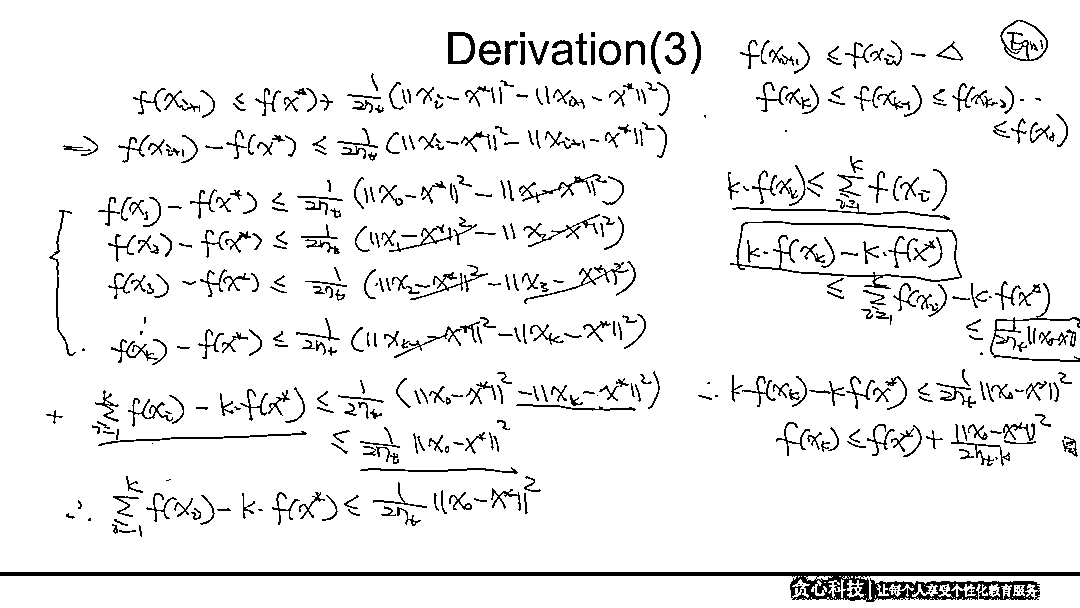 Derivation(3)
f(x_{i+1}) ≤ f(x*) + 1/2η_t (||x_i - x*||² - ||x_{i+1} - x*||²)
⇒ f(x_{i+1}) - f(x*) ≤ 1/2η_t (||x_i - x*||² - ||x_{i+1} - x*||²)
f(x_1) - f(x*) ≤ 1/2η_t (||x_0 - x*||² - ||x_1 - x*||²)
f(x_2) - f(x*) ≤ 1/2η_t (||x_1 - x*||² - ||x_2 - x*||²)
f(x_3) - f(x*) ≤ 1/2η_t (||x_2 - x*||² - ||x_3 - x*||²)
⋮
f(x_k) - f(x*) ≤ 1/2η_t (||x_{k-1} - x*||² - ||x_k - x*||²)
+ Σ_{i=1}^{k} f(x_i) - k·f(x*) ≤ 1/2η_t (||x_0 - x*||² - ||x_k - x*||²)
≤ 1/2η_t ||x_0 - x*||²
∴ Σ_{i=1}^{k} f(x_i) - k·f(x*) ≤ 1/2η_t ||x_0 - x*||²
f(x_{i+1}) ≤ f(x_i) - △ Eqn1
f(x_k) ≤ f(x_{k-1}) ≤ f(x_{k-2}) ··
≤ f(x_0)
k·f(x_k) ≤ Σ_{i=1}^{k} f(x_i)
k·f(x_k) - k·f(x*)
≤ Σ_{i=1}^{k} f(x_i) - k·f(x*)
≤ 1/2η_t ||x_0 - x*||²
∴ k·f(x_k) - k·f(x*) ≤ 1/2η_t ||x_0 - x*||²
f(x_k) ≤ f(x*) + ||x_0 - x*||²/2η_t·k
贪心科技 | 让每个人享受个性化教育服务